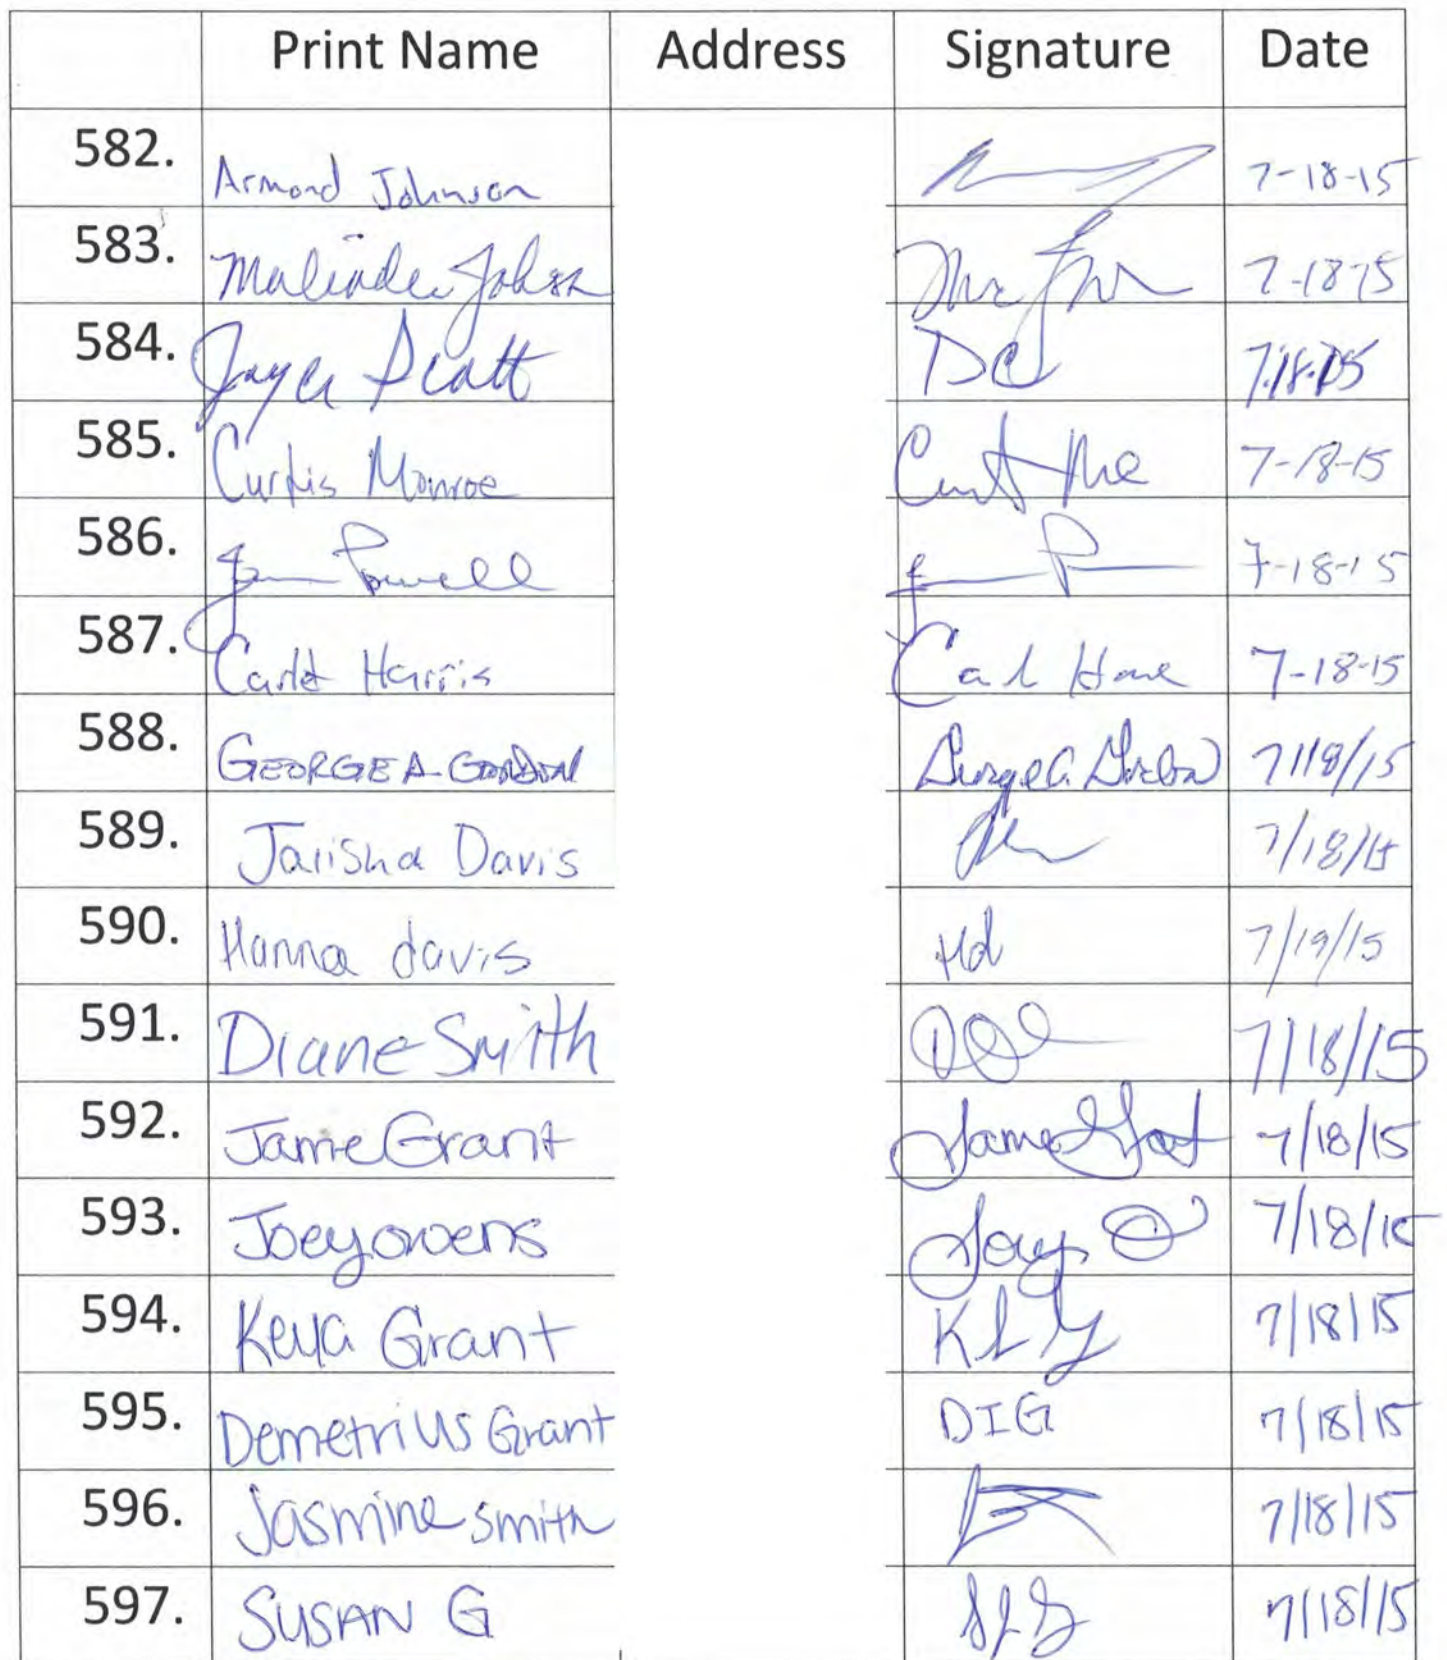 Print Name Address Signature Date
582. Armond Johnson 7-18-15
583. Malinda 7-18-15
584. Joyce Pratt 7.18.15
585. Curtis Monroe 7-18-15
586. Powell 7-18-15
587. Harris 7-18-15
588. GEORGE A GORDON 7/18/15
589. Jarisha Davis 7/18/15
590. Hanna davis Hd 7/19/15
591. Diane Smith 7/18/15
592. Jamie Grant 7/18/15
593. Joey owens Joey O 7/18/15
594. Keya Grant 7/18/15
595. Demetrius Grant DIG 7/18/15
596. Jasmine smith 7/18/15
597. SUSAN G SLG 7/18/15